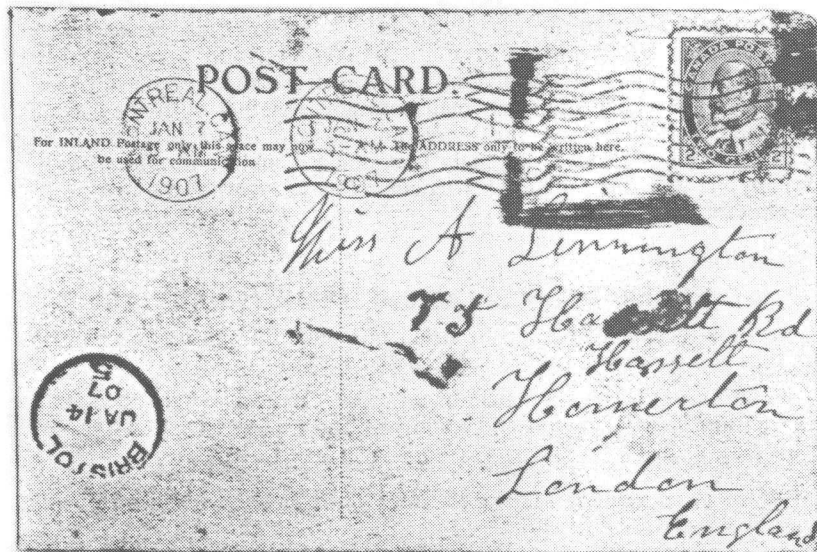 POST CARD.
CANADA POSTAGE
2 CENTS 2
MONTREAL CA
JAN 7
1907
For INLAND Postage only this space may now
be used for communication
The ADDRESS only to be written here.
Miss A Linnington
75 Hassett Rd
Hassett
Homerton
London
England
BRISTOL
JA 14
07
5